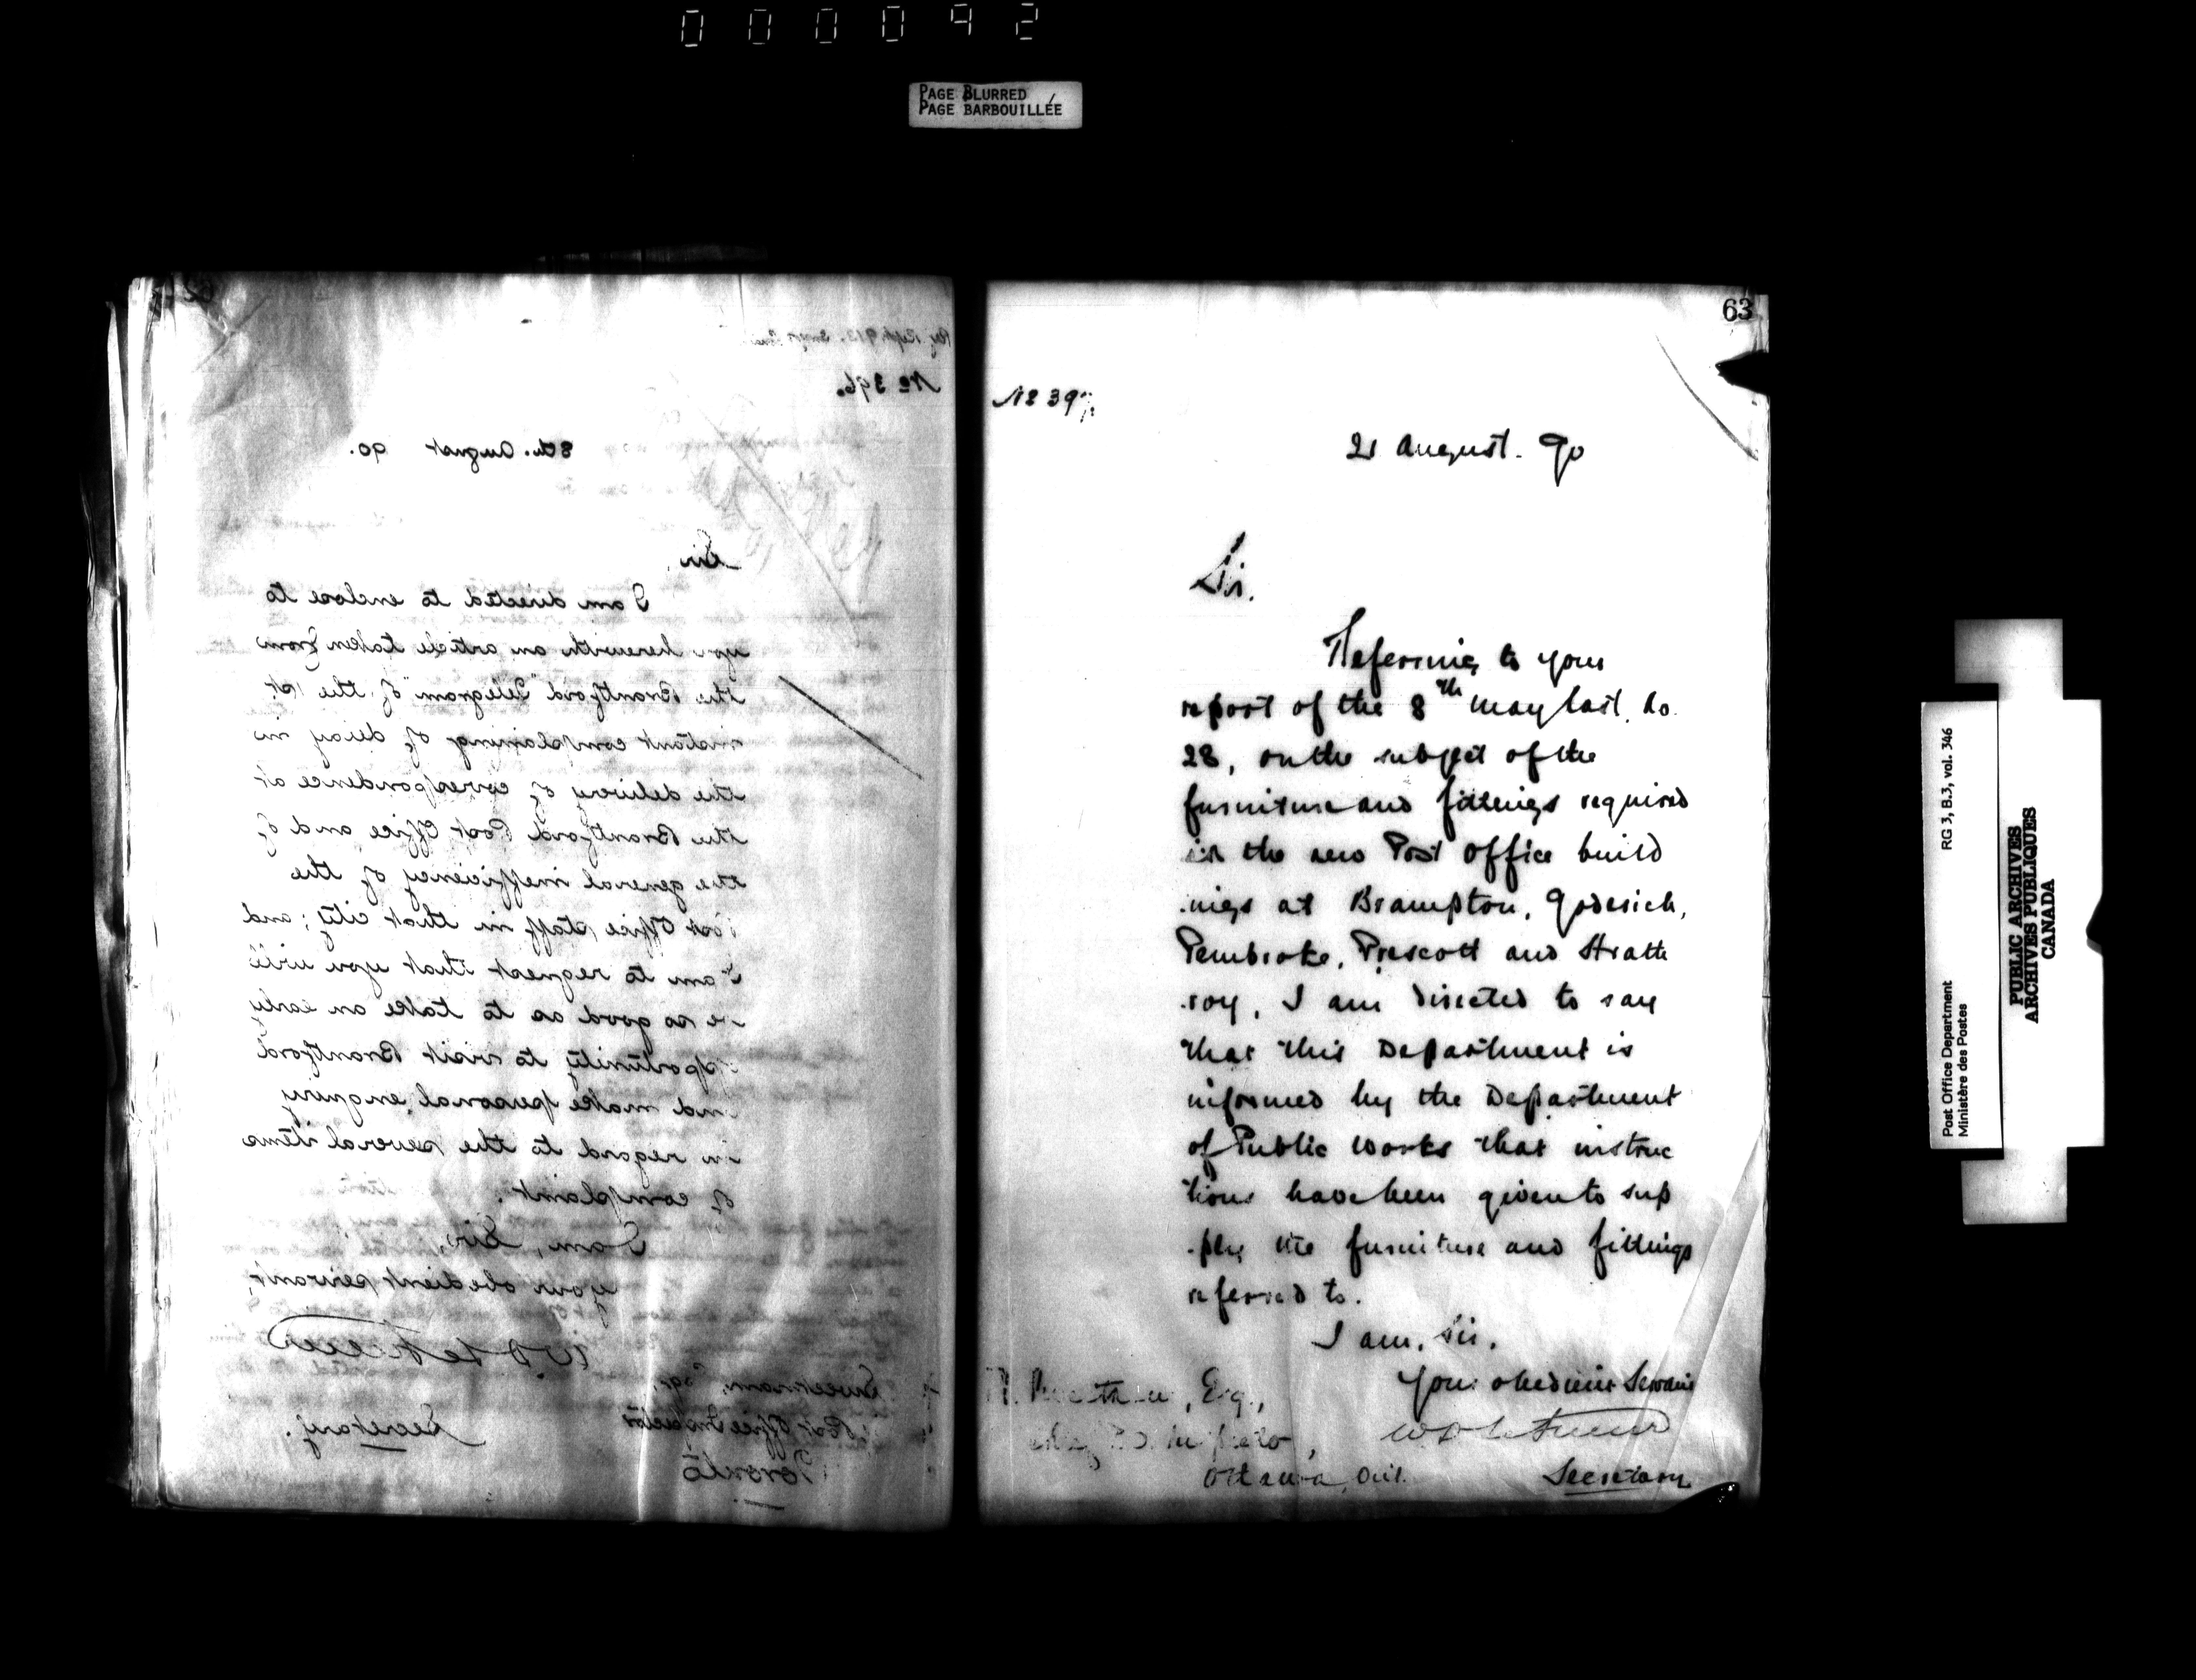 000092
PAGE BLURRED
PAGE BARBOUILLÉE
No 396.
8th. August 90.
Sir,
I am directed to enclose to
you herewith an article taken from
the Brantford "Telegram" of the 1st
instant complaining of delay in
the delivery of correspondence at
the Brantford Post Office and of
the general inefficiency of the
Post Office staff in that city; and
I am to request that you will
be so good as to take an early
opportunity to visit Brantford
and make personal enquiry
in regard to the several items
of complaint.
I am, Sir,
your obedient servant,
Secretary.
Sweetnam, Esqr,
Post Office Inspector
Toronto
63
No 397.
21 August. 90
Sir.
Referring to your
report of the 8th May last, No.
28, on the subject of the
furniture and fittings required
in the new Post Office build
ings at Brampton, Goderich,
Pembroke, Prescott and Strath
roy, I am directed to say
that this Department is
informed by the Department
of Public Works that instruc
tions have been given to sup
ply the furniture and fittings
referred to.
I am, Sir,
Your obedient Servant
Esq.,
Ottawa, Ont.
Secretary
Post Office Department RG 3, B.3, vol. 346
Ministère des Postes
PUBLIC ARCHIVES
ARCHIVES PUBLIQUES
CANADA